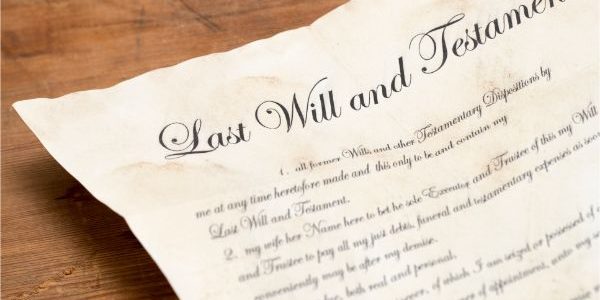 Last Will and Testamen
1. all former Wills and other Testamentary Dispositions by
me at any time heretofore made and this only to be and contain my
Last Will and Testament.
2. my wife her Name here to bet he sole Executor and Trustee of this my Will
and Trustee to pay all my just debts, funeral and testamentary expenses as soon
conveniently may be after my demise.
both real and personal.
of which I am seized or possessed of
of appointment, unto my